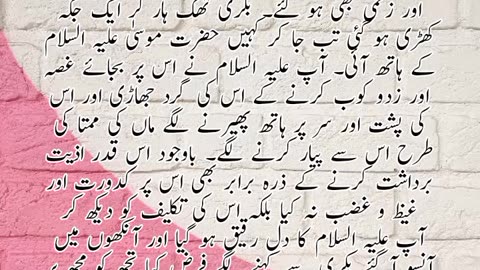 اور زخمی بھی ہو گئے۔ بکری تھک ہار کر ایک جگہ
کھڑی ہو گئی تب جا کر کہیں حضرت موسیٰ علیہ السلام
کے ہاتھ آئی۔ آپ علیہ السلام نے اس پر بجائے غصہ
اور زدو کوب کرنے کے اس کی گرد جھاڑی اور اس
کی پشت اور سر پر ہاتھ پھیرنے لگے ماں کی ممتا کی
طرح اس سے پیار کرنے لگے۔ باوجود اس قدر اذیت
برداشت کرنے کے ذرہ برابر بھی اس پر کدورت اور
غیظ و غضب نہ کیا بلکہ اس کی تکلیف کو دیکھ کر
آپ علیہ السلام کا دل رقیق ہو گیا اور آنکھوں میں
آنسو آ گئے بکری سے کہنے لگے فرض کیا تجھ کو مجھ پر